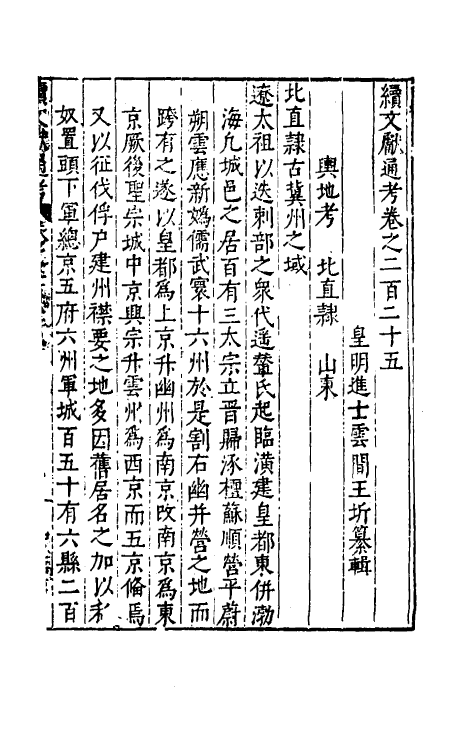 續文獻通考卷之二百二十五
皇明進士雲間王圻纂輯
輿地考 北直隸 山東
北直隸古冀州之域
遼太祖以迭剌部之衆代遥輦氏起臨潢建皇都東併渤
海凡城邑之居百有三太宗立晋歸涿檀蘇順營平蔚
朔雲應新媯儒武寰十六州於是割右幽并營之地而
跨有之遂以皇都爲上京升幽州爲南京改南京爲東
京厥後聖宗城中京興宗升雲州爲西京而五京俻焉
又以征伐俘户建州襟要之地多因舊居名之加以私
奴置頭下軍總京五府六州軍城百五十有六縣二百